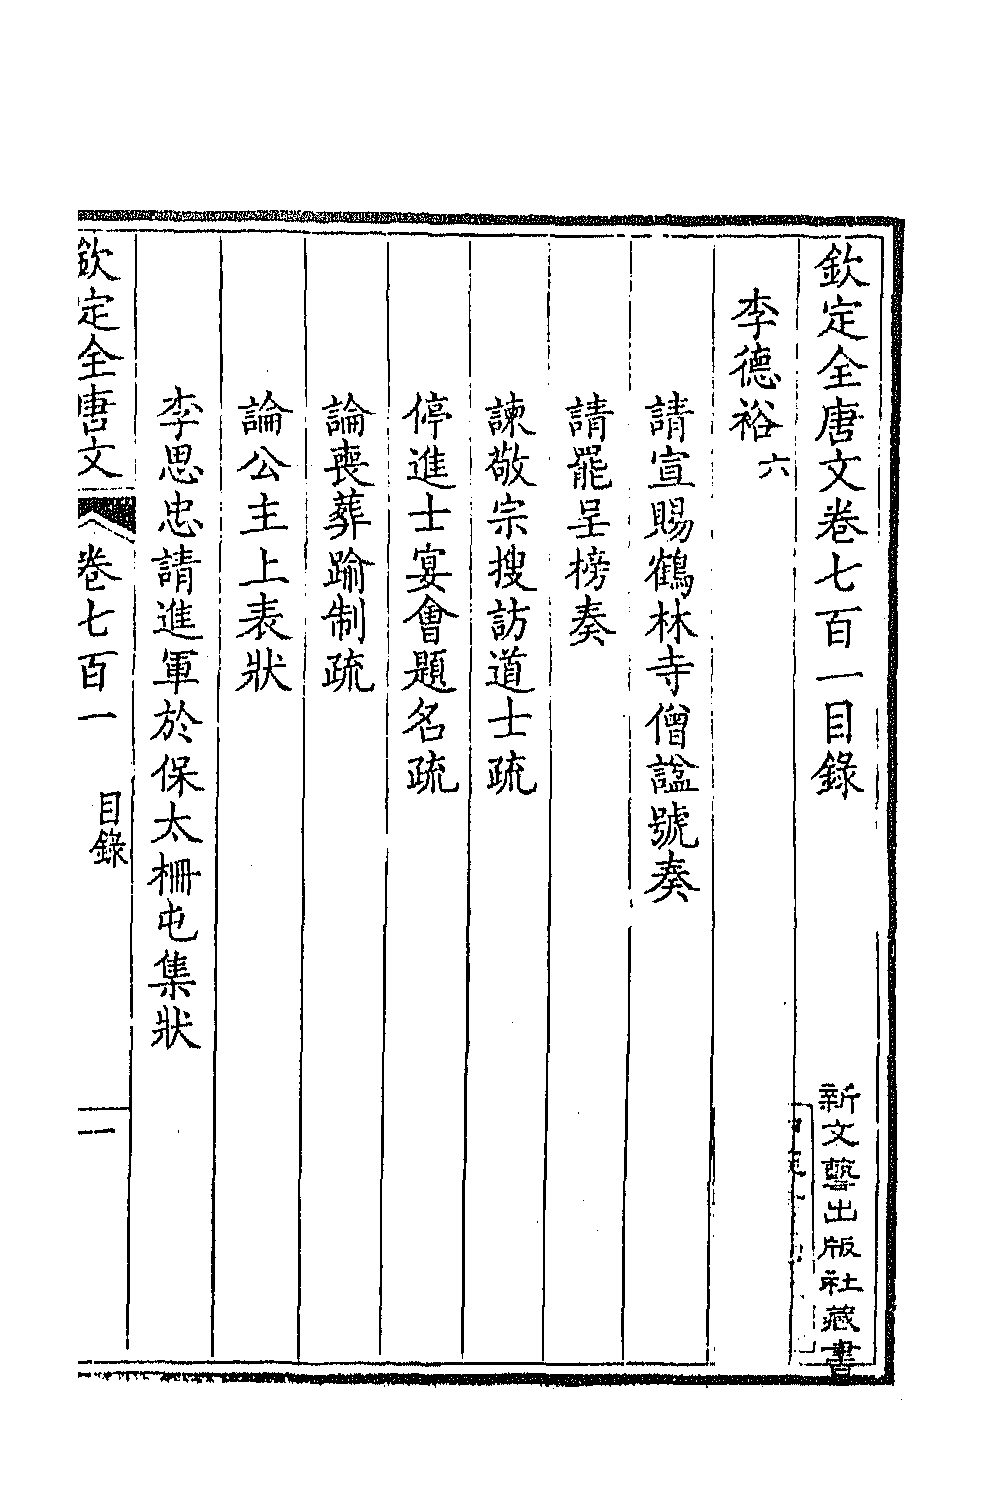 欽定全唐文卷七百一目錄
新文藝出版社藏書
李德裕六
請宣賜鶴林寺僧諡號奏
請罷呈榜奏
諫敬宗搜訪道士疏
停進士宴會題名疏
論喪葬踰制疏
論公主上表狀
李思忠請進軍於保太柵屯集狀
欽定全唐文 卷七百一 目錄 一